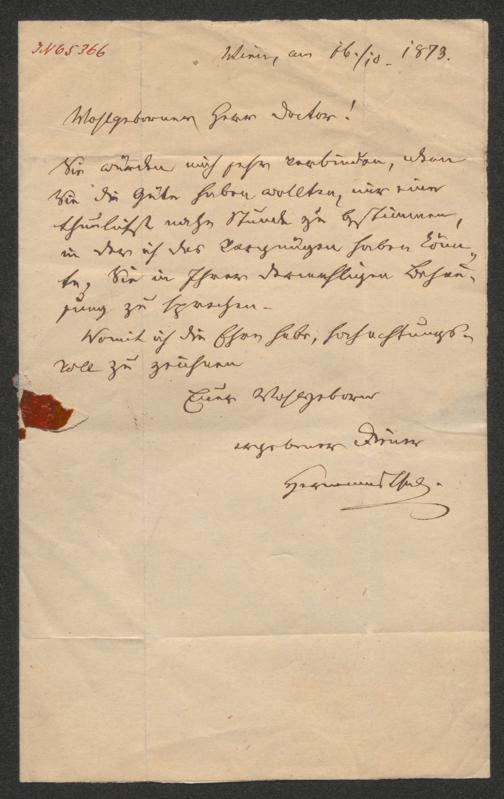 IN65366
Wien, am 16./10. 1873.
Wohlgeborner Herr Doctor!
Sie würden mich sehr verbinden, wenn
Sie die Güte haben wollten, mir eine
thunlichst nahe Stunde zu bestimmen,
in der ich das Vergnügen haben könn-
te, Sie in Ihrer dermahligen Behau-
sung zu sprechen.
Womit ich die Ehre habe, hochachtungs-
voll zu zeichnen
Euer Wohlgeboren
ergebener Diener